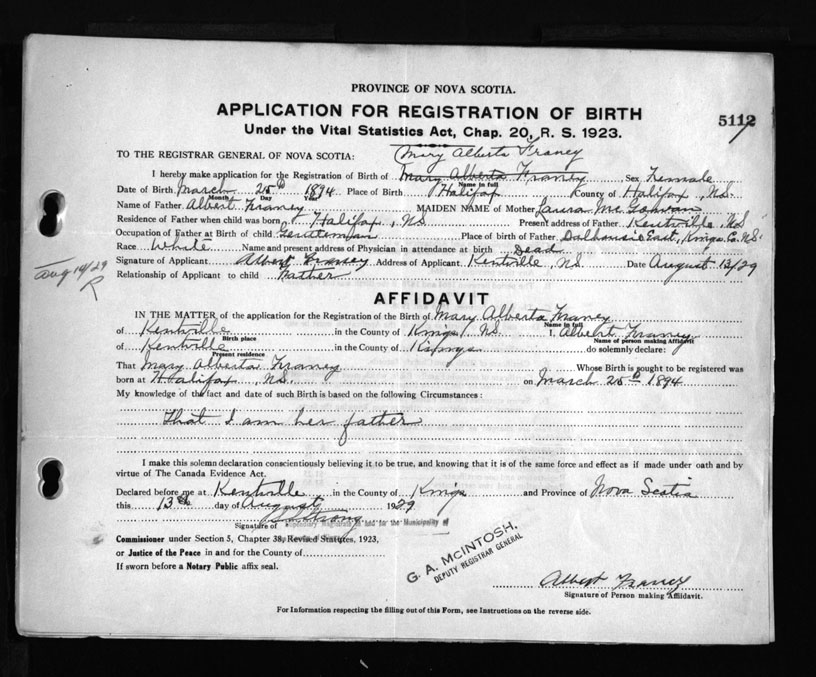 PROVINCE OF NOVA SCOTIA.
APPLICATION FOR REGISTRATION OF BIRTH
5112
Under the Vital Statistics Act, Chap. 20, R. S. 1923.
Mary Alberta Franey
TO THE REGISTRAR GENERAL OF NOVA SCOTIA:
I hereby make application for the Registration of Birth of Mary Alberta Franey, Sex Female
Name in full
Date of Birth March 25th 1894 Place of Birth Halifax County of Halifax, N.S.
Month Day Year
Name of Father Albert Franey MAIDEN NAME of Mother Laura McGowan
Residence of Father when child was born Halifax, N.S. Present address of Father Kentville, N.S.
Occupation of Father at Birth of child Place of birth of Father Dalhousie East, Kings Co. N.S.
Race White Name and present address of Physician in attendance at birth Dead
Signature of Applicant Albert Franey Address of Applicant Kentville, N.S. Date August 13/29
Aug 14/29
R
Relationship of Applicant to child Father
AFFIDAVIT
IN THE MATTER of the application for the Registration of the Birth of Mary Alberta Franey
Name in full
of Kentville in the County of Kings, N.S. I, Albert Franey
Birth place Name of person making Affidavit
of Kentville in the County of Kings do solemnly declare:
Present residence
That Mary Alberta Franey Whose Birth is sought to be registered was
born at Halifax, N.S. on March 25th 1894
My knowledge of the fact and date of such Birth is based on the following Circumstances:
That I am her father
I make this solemn declaration conscientiously believing it to be true, and knowing that it is of the same force and effect as if made under oath and by
virtue of The Canada Evidence Act.
Declared before me at Kentville in the County of Kings and Province of Nova Scotia
this 13th day of August 1929
Signature of Stipendiary Magistrate in and for the Municipality of
Commissioner under Section 5, Chapter 38, Revised Statutes, 1923,
or Justice of the Peace in and for the County of
If sworn before a Notary Public affix seal.
G. A. McINTOSH.
DEPUTY REGISTRAR GENERAL
Albert Franey
Signature of Person making Affidavit.
For Information respecting the filling out of this Form, see Instructions on the reverse side.